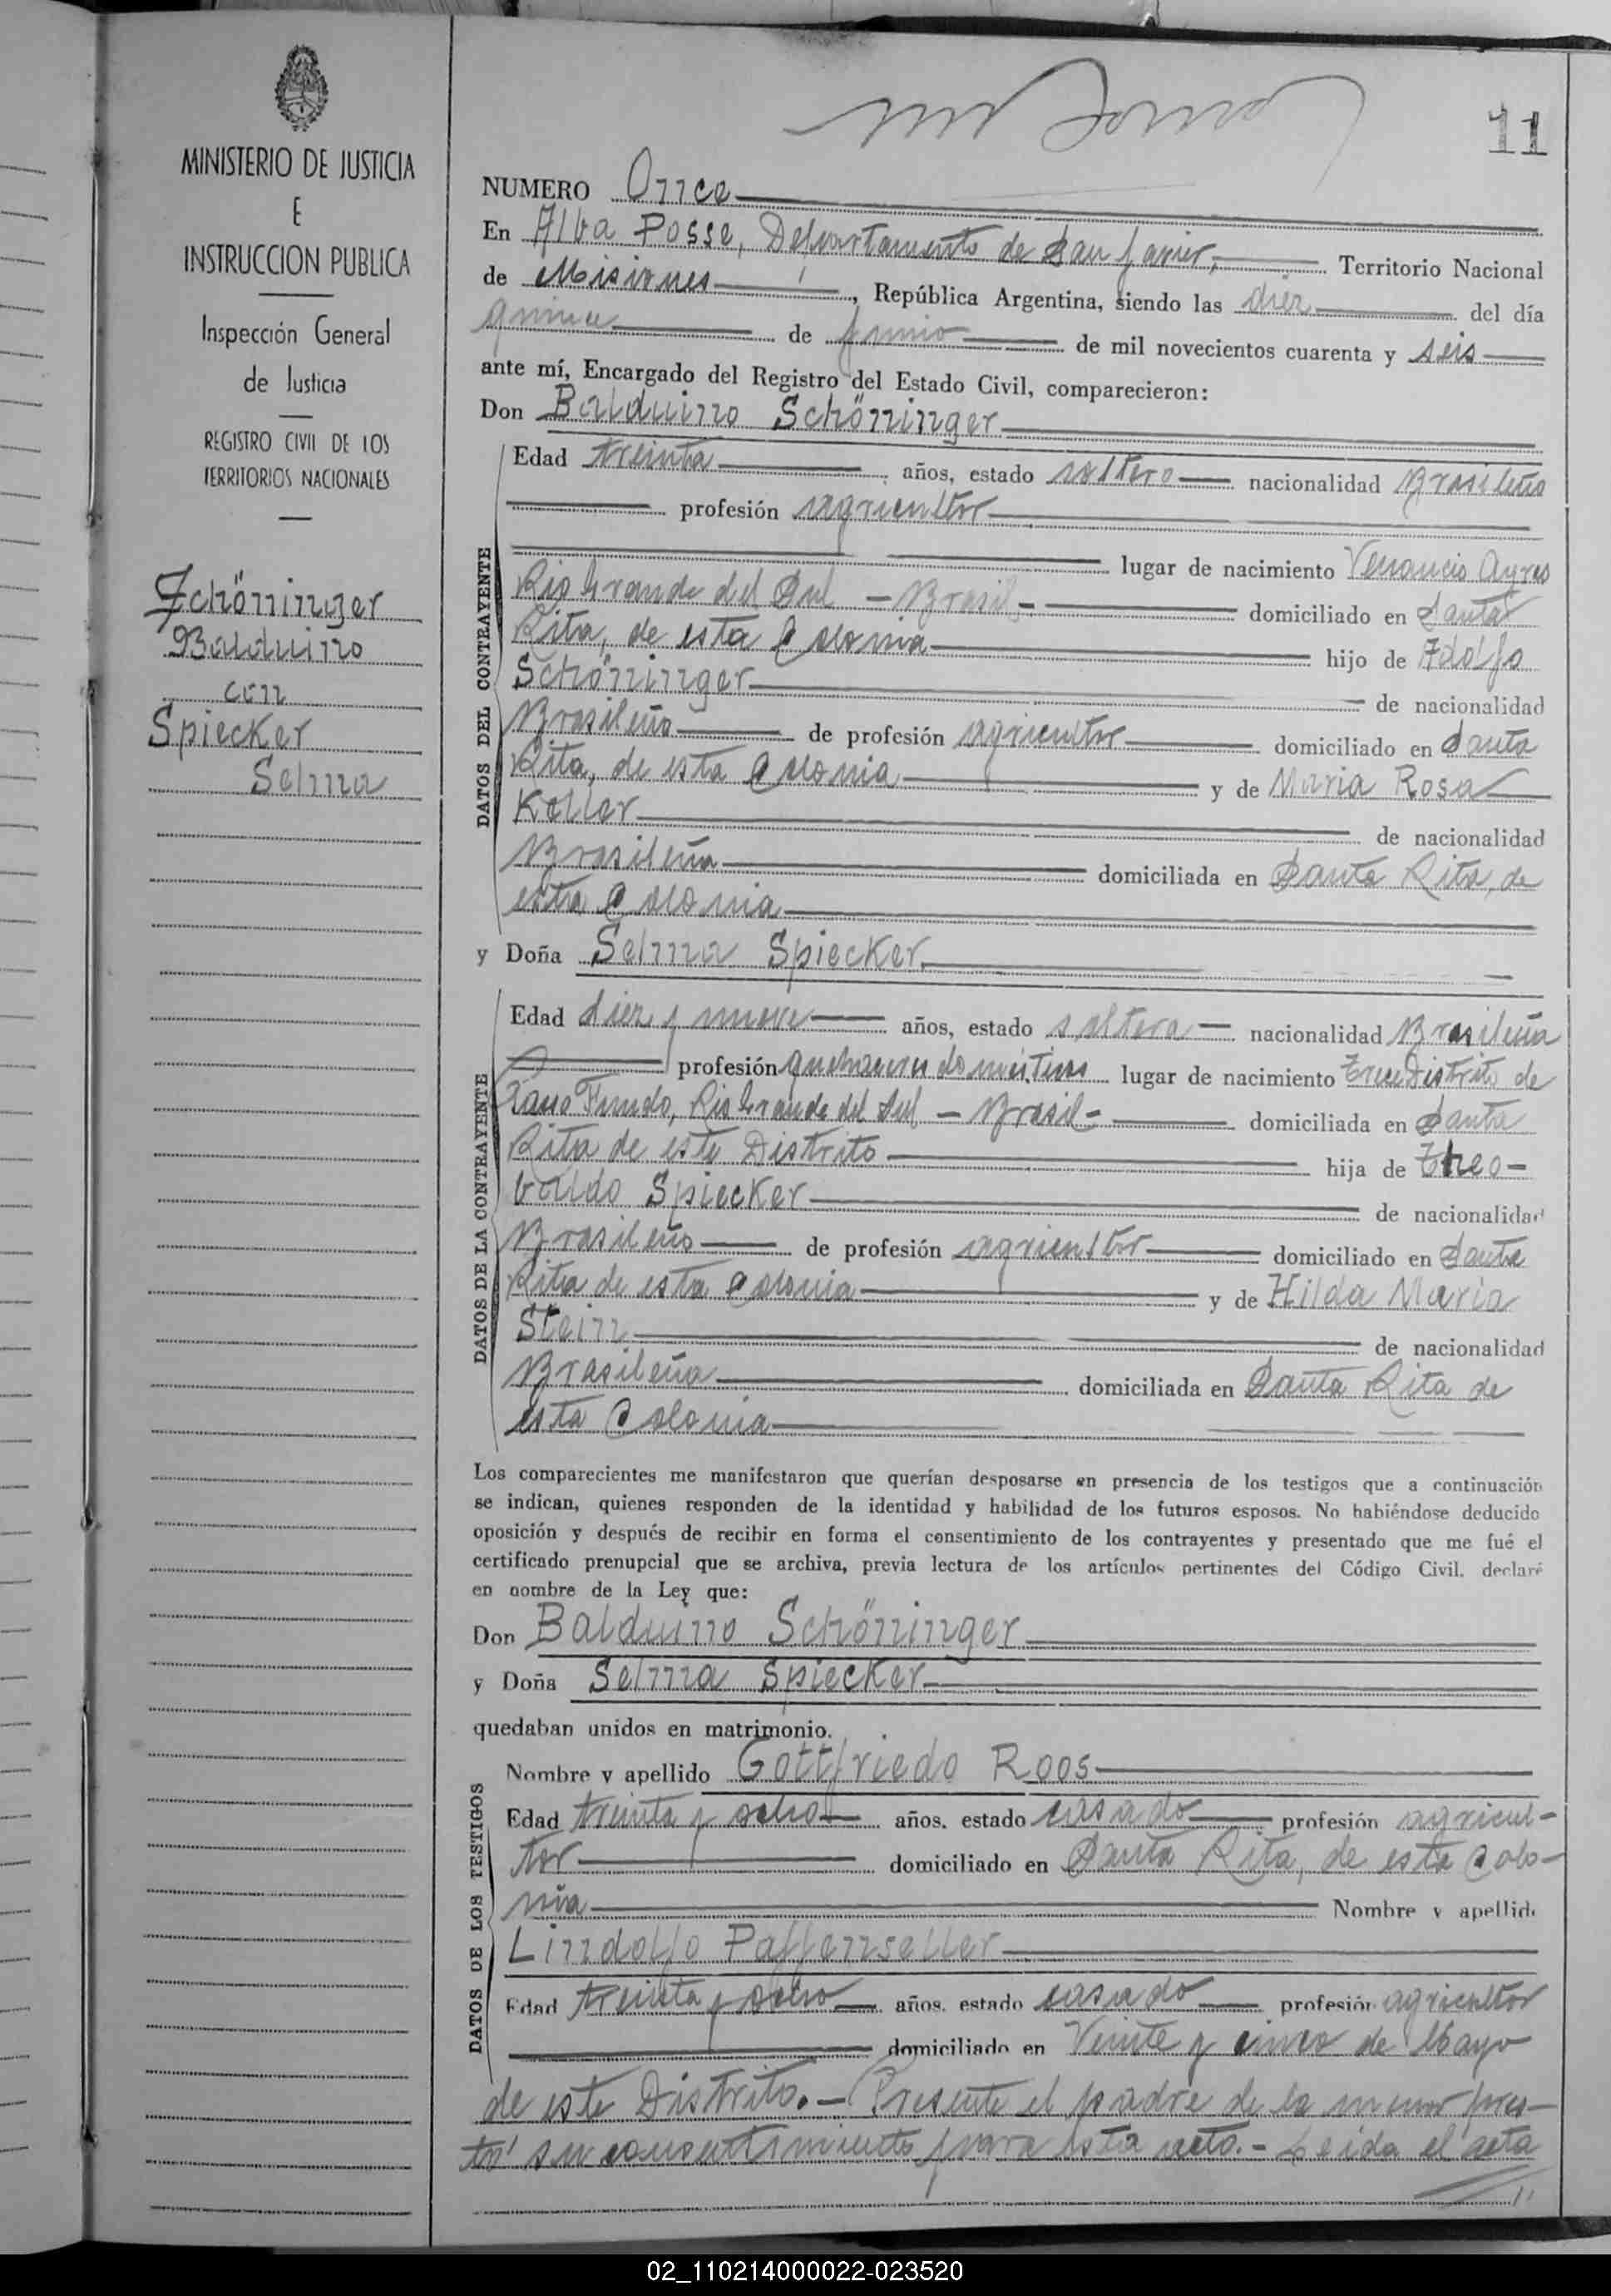 MINISTERIO DE JUSTICIA
E
INSTRUCCION PUBLICA
Inspección General
de Justicia
REGISTRO CIVIL DE LOS
TERRITORIOS NACIONALES
Schöninger
Balduino
con
Spiecker
Selma
11
NUMERO Once
En Alba Posse, Departamento de San Javier, Territorio Nacional
de Misiones, República Argentina, siendo las diez del día
quince de Junio de mil novecientos cuarenta y seis
ante mí, Encargado del Registro del Estado Civil, comparecieron:
Don Balduino Schöninger
DATOS DEL CONTRAYENTE
Edad treinta años, estado soltero nacionalidad Brasileño
profesión agricultor
lugar de nacimiento Venancio Ayres
Rio Grande del Sul - Brasil - domiciliado en Santa
Rita, de esta Colonia hijo de Adolfo
Schöninger de nacionalidad
Brasileño de profesión agricultor domiciliado en Santa
Rita, de esta Colonia y de Maria Rosa
Keller de nacionalidad
Brasileña domiciliada en Santa Rita, de
esta Colonia
y Doña Selma Spiecker
DATOS DE LA CONTRAYENTE
Edad diez y nueve años, estado soltera nacionalidad Brasileña
profesión quehaceres domésticos lugar de nacimiento Trece Distrito de
Passo Fundo, Rio Grande del Sul - Brasil - domiciliada en Santa
Rita de este Distrito hija de Theo-
baldo Spiecker de nacionalidad
Brasileño de profesión agricultor domiciliado en Santa
Rita de esta Colonia y de Hilda Maria
Stein de nacionalidad
Brasileña domiciliada en Santa Rita de
esta Colonia
Los comparecientes me manifestaron que querían desposarse en presencia de los testigos que a continuación
se indican, quienes responden de la identidad y habilidad de los futuros esposos. No habiéndose deducido
oposición y después de recibir en forma el consentimiento de los contrayentes y presentado que me fué el
certificado prenupcial que se archiva, previa lectura de los artículos pertinentes del Código Civil, declaré
en nombre de la Ley que:
Don Balduino Schöninger
y Doña Selma Spiecker
quedaban unidos en matrimonio.
DATOS DE LOS TESTIGOS
Nombre y apellido Gottfriedo Roos
Edad treinta y ocho años, estado casado profesión agricul-
tor domiciliado en Santa Rita, de esta Colo-
nia Nombre y apellido
Lindolfo Paffenseller
Edad treinta y ocho años, estado casado profesión agricultor
domiciliado en Veinte y cinco de Mayo
de este Distrito.- Presente el padre de la menor pres-
tó su consentimiento para este acto.- Leida el acta
02_110214000022-023520